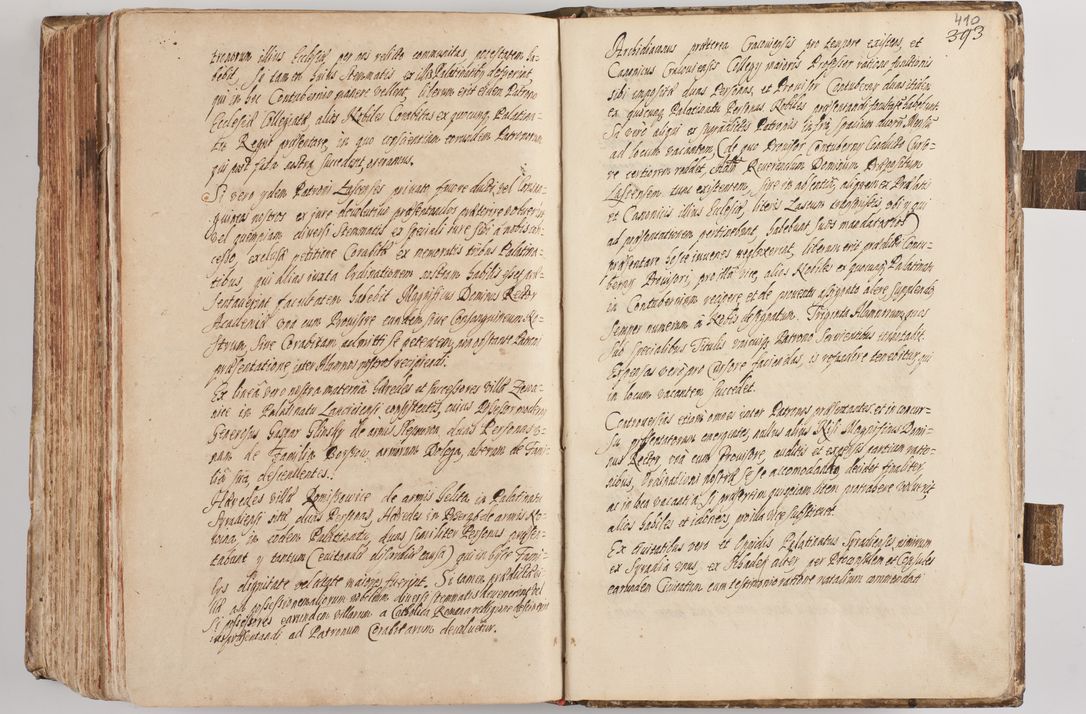 illius Ecclesiæ per eos relicto
debit. Si tamen huius Stemmatis ex illis Palatinatibus defuerint
qui in hoc Contubernio manere vellent, liberum erit eidem Patrono
Ecclesiæ Collegiatæ alios Nobiles Conabites ex quocunq Palatina-
tu Regni præsentare, in quo conscientiam eorundem Patronorum
qui post fata nostra succedent, oneramus.
Si vero ydem Patroni Lascenses privato favore ducti vel Consan-
guineos nostros ex jure devolutius præsentandos præterire voluerint
vel quempiam diversi Stemmatis ex speciali iure sibi a nobis con-
cesso, exclusa petitione Corabitæ ex memoratis tribus Palatina-
tibus, qui alias iuxta Ordinationem nostram habilis esset præ-
sentaverint facultatem habebit Magnificus Dominus Rector
Academiæ una cum Provisore eundem sive Consanguineum No-
strum, sive Corabitam admitti se petentem, non obstante Patroni
præsentatione inter Alumnos nostros recipiendi.
Ex linea vero nostra materna Hæredes et successores villæ
in Palatinatu Lanciciensi consistentis, cuius Possessor modernus
Generosus Gaspar Glinsky de armis duas Personas u-
nam de Familia armorum Dolega, alteram de Fami-
lia sua, descendentes.
Hæredes villæ de armis Gelita in Palatinatu
Syradiensi sitæ duas Personas, Hæredes in de armis Ro-
in eodem Palatinatu, duas similiter Personas præsen-
tabunt y tantum (evitandæ discordiæ causa) qui in hysce Fami-
lys dignitate vel ætate maiores fuerint. Si tamen prædictæ vil-
læ ad possessionem aliorum nobilium diversi stemmatis devenerint, vel
si possessores earundem villarum a Catholica Romana religione defecerint
ius præsentandi ad Patronum Corabitarum devolvetur.
410
393
Archidiaconus præterea Cracoviensis pro tempore existens, et
Canonicus Cracoviensis Collegy maioris Professor ratione functionis
sibi impositæ duas Personas, et Provisor Contubernÿ duas itidem
ex quocunq Palatinatu Personas Nobiles præsentandi facultatem habebunt
Si vero aliqui ex supradictis Patronis infra spatium duorum Mensium
ad locum vacantem, (de quo Provisor Contubernÿ
ve certiorem reddet, Reverendum Dominum Præpositum
Lascensem tunc existentem, sive eo absente, aliquem ex Prælatis
et Canonicis illius Ecclesiæ, literis Lascum transmissis ubi y qui
ad præsentationem pertinebunt, habebunt suos mandatarios)
præsentare hosce iuvenes neglexerint, liberum erit prædicto Contu-
bernÿ Provisori, pro illa vice, alios Nobiles ex quocunq Palatinatu
in Contubernium recipere et de proventu assignato alere, supplendo
semper numerum a Nobis designatum. Triginta Alumnorum, quos
sub specialibus Titulis unicuiq Patrono
Expensas vero pro Cursore faciendas, is refundere tenebitur, qui
in locum vacantem succedet.
Controversias etiam omnes inter Patronos præsentantes et in concur-
su præsentatorum emergentes, nullus alius Nisi Magnificus Domi-
nus Rector una cum Provisore, auditis et excussis partium ratio-
nibus, Ordinationi nostræ se se accomodando decidet finaliter,
ac in loca vacantia, si præsertim quispiam litem protrahere voluerit
alios habiles et idoneos, pro illa vice substituet.
Ex Civitatibus vero et Oppidis Palatinatus Syradiensis, nimirum
ex Syradia unus, ex Schadek alter per Proconsulem et Consules
earundem Civitatum cum testimonio natalium commendati